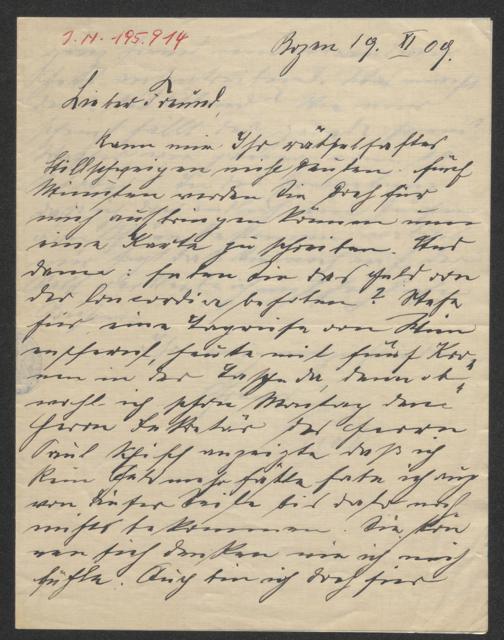 J. N. 195.914
Bozen 19. XI 09.
Lieber Freund,
Kann mir Ihr rätselhaftes
Stillschweigen nicht deuten. Fünf
Minuten werden Sie doch für
mich aufbringen können um
eine Karte zu schreiben. Und
dann: haben Sie das Geld von
der Concordia behoben? Stehe
für eine Tagreise von Wien
entfernt, heute mit fünf Kro-
nen in der Tasche da, denn ob-
wohl ich schon Montag dem
Herrn Sekretär des Herrn
anzeigte daß ich
kein Geld mehr hätte habe ich auch
von dieser Seite bis dato noch
nichts bekommen. Sie kön
nen sich denken wie ich mich
fühle. Auch bin ich doch hier